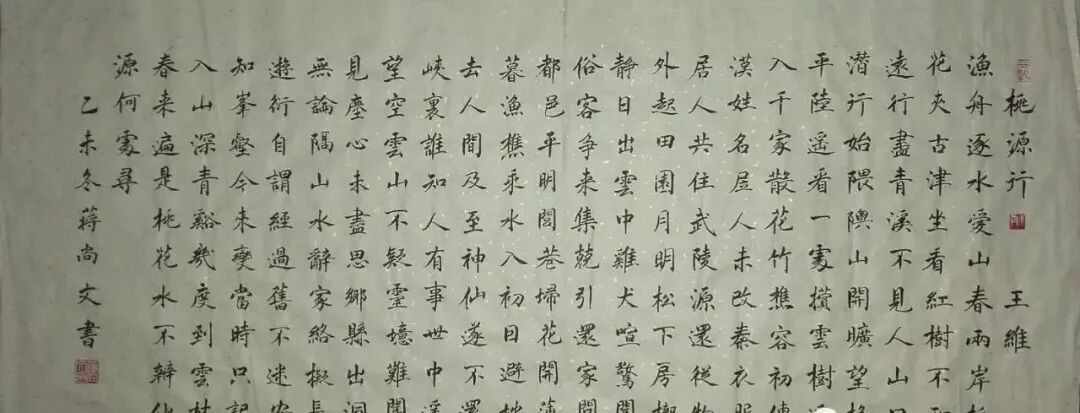 桃源行 王維
漁舟逐水愛山春兩岸
花夾古津坐看紅樹不知
遠行盡青溪不見人山口
潛行始隈隩山開曠望
平陸遙看一處攢雲樹
入千家散花竹樵客初傳
漢姓名居人未改秦衣服
居人共住武陵源還從物
外起田園月明松下房櫳
靜日出雲中雞犬喧驚聞
俗客爭来集競引還家問
都邑平明閭巷掃花開薄
暮漁樵乘水入初日避地
去人間及至神仙遂不還
峽裏誰知人有事世中遙
望空雲山不疑靈境難聞
見塵心未盡思鄉縣出洞
無論隔山水辭家終擬長
遊衍自謂經過舊不迷安
知峯壑今来變當時只記
入山深青谿幾度到雲林
春来遍是桃花水不辨仙
源何處尋
乙未冬蔣尚文書